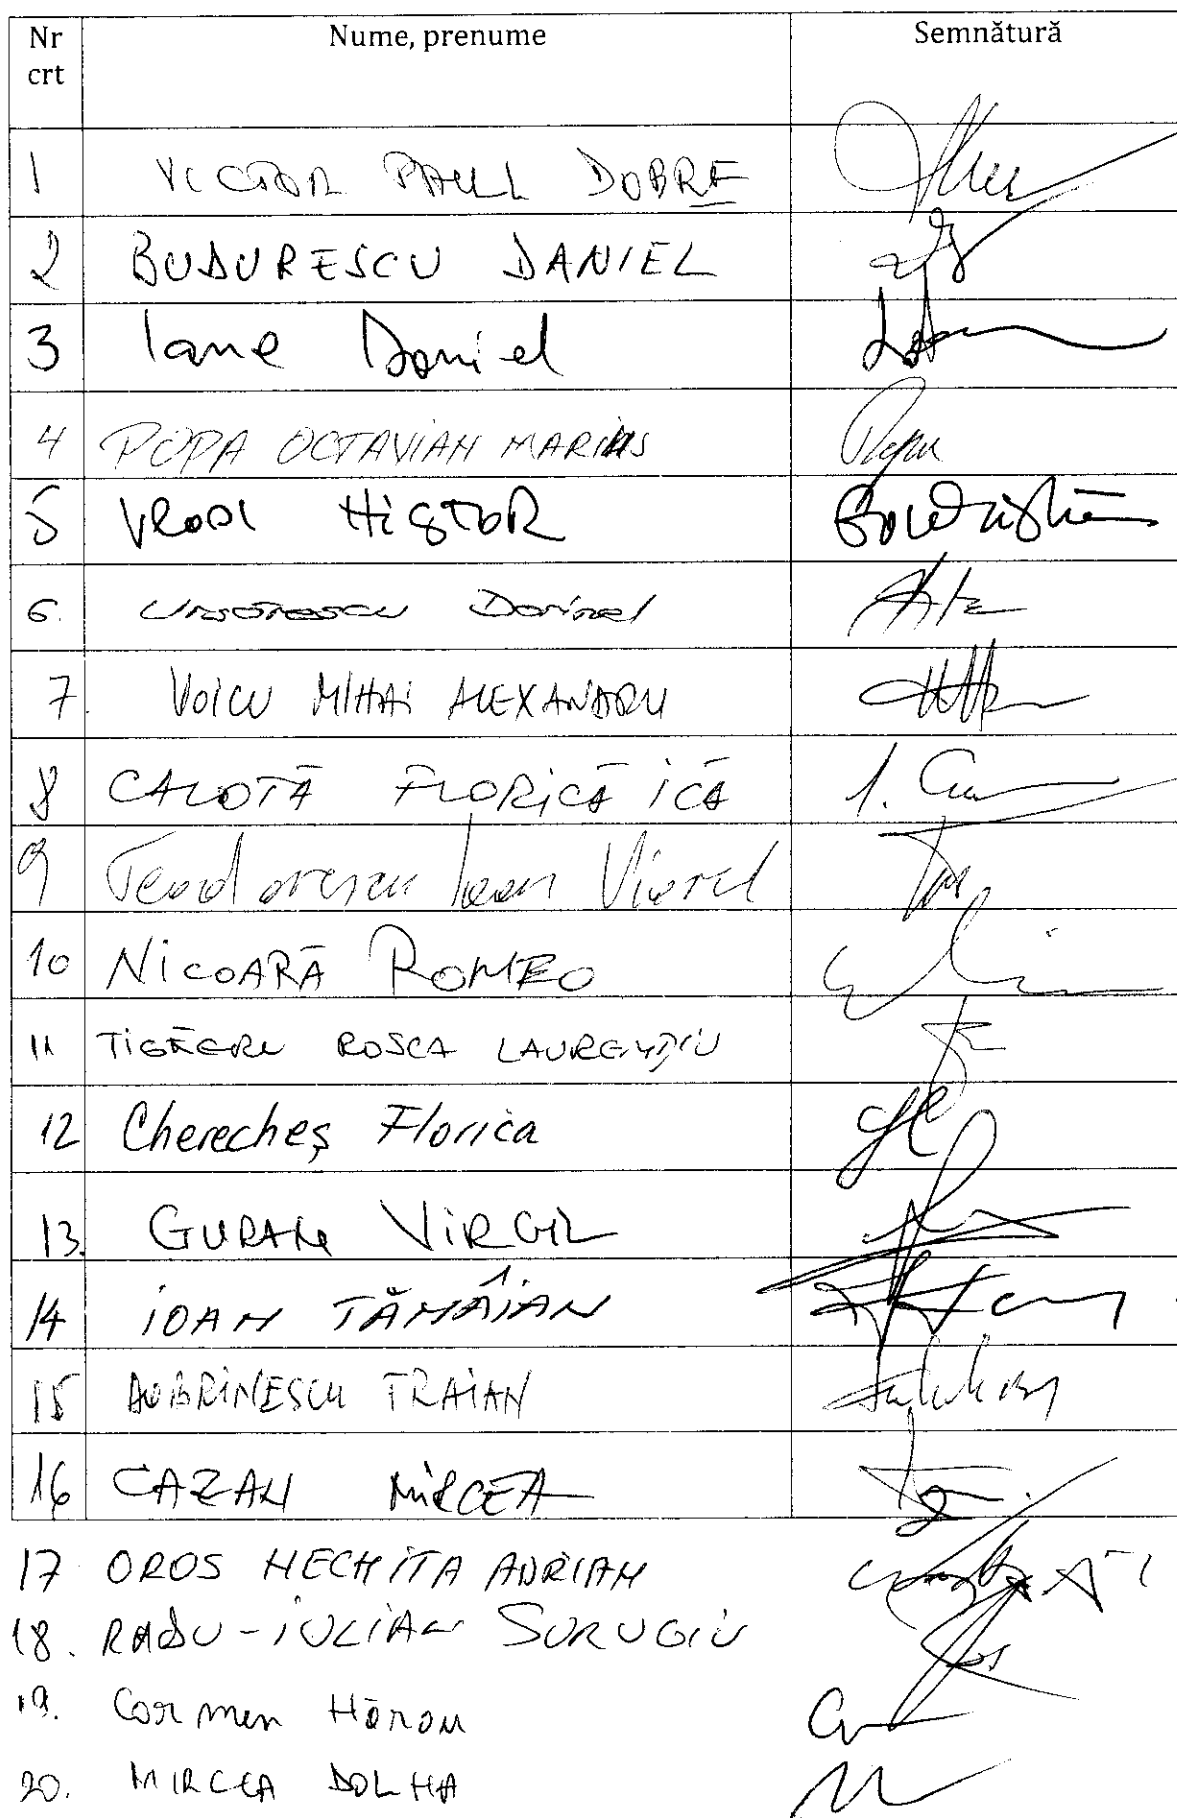 Nr crt Nume, prenume Semnătură
1 VICTOR PAUL DOBRE
2 BUDURESCU DANIEL
3 Iane Daniel
4 POPA OCTAVIAN MARIUS Popa
5
6. Dorinel
7. VOICU MIHAI ALEXANDRU
8 CALOTĂ FLORICĂ ICĂ
9 Teodorescu Ioan Viorel
10 NICOARĂ ROMEO
11 TIGĂERU ROȘCA LAURENȚIU
12 Cherecheș Florica
13. GURAN VIRGIL
14 IOAN TĂMÂIAN
15 DOBRINESCU TRAIAN
16 CAZAN MIRCEA
17 OROS NECHITA ADRIAN
18. RADU-IULIAN SURUGIU
19. Carmen Hărău
20. MIRCEA DOLHA